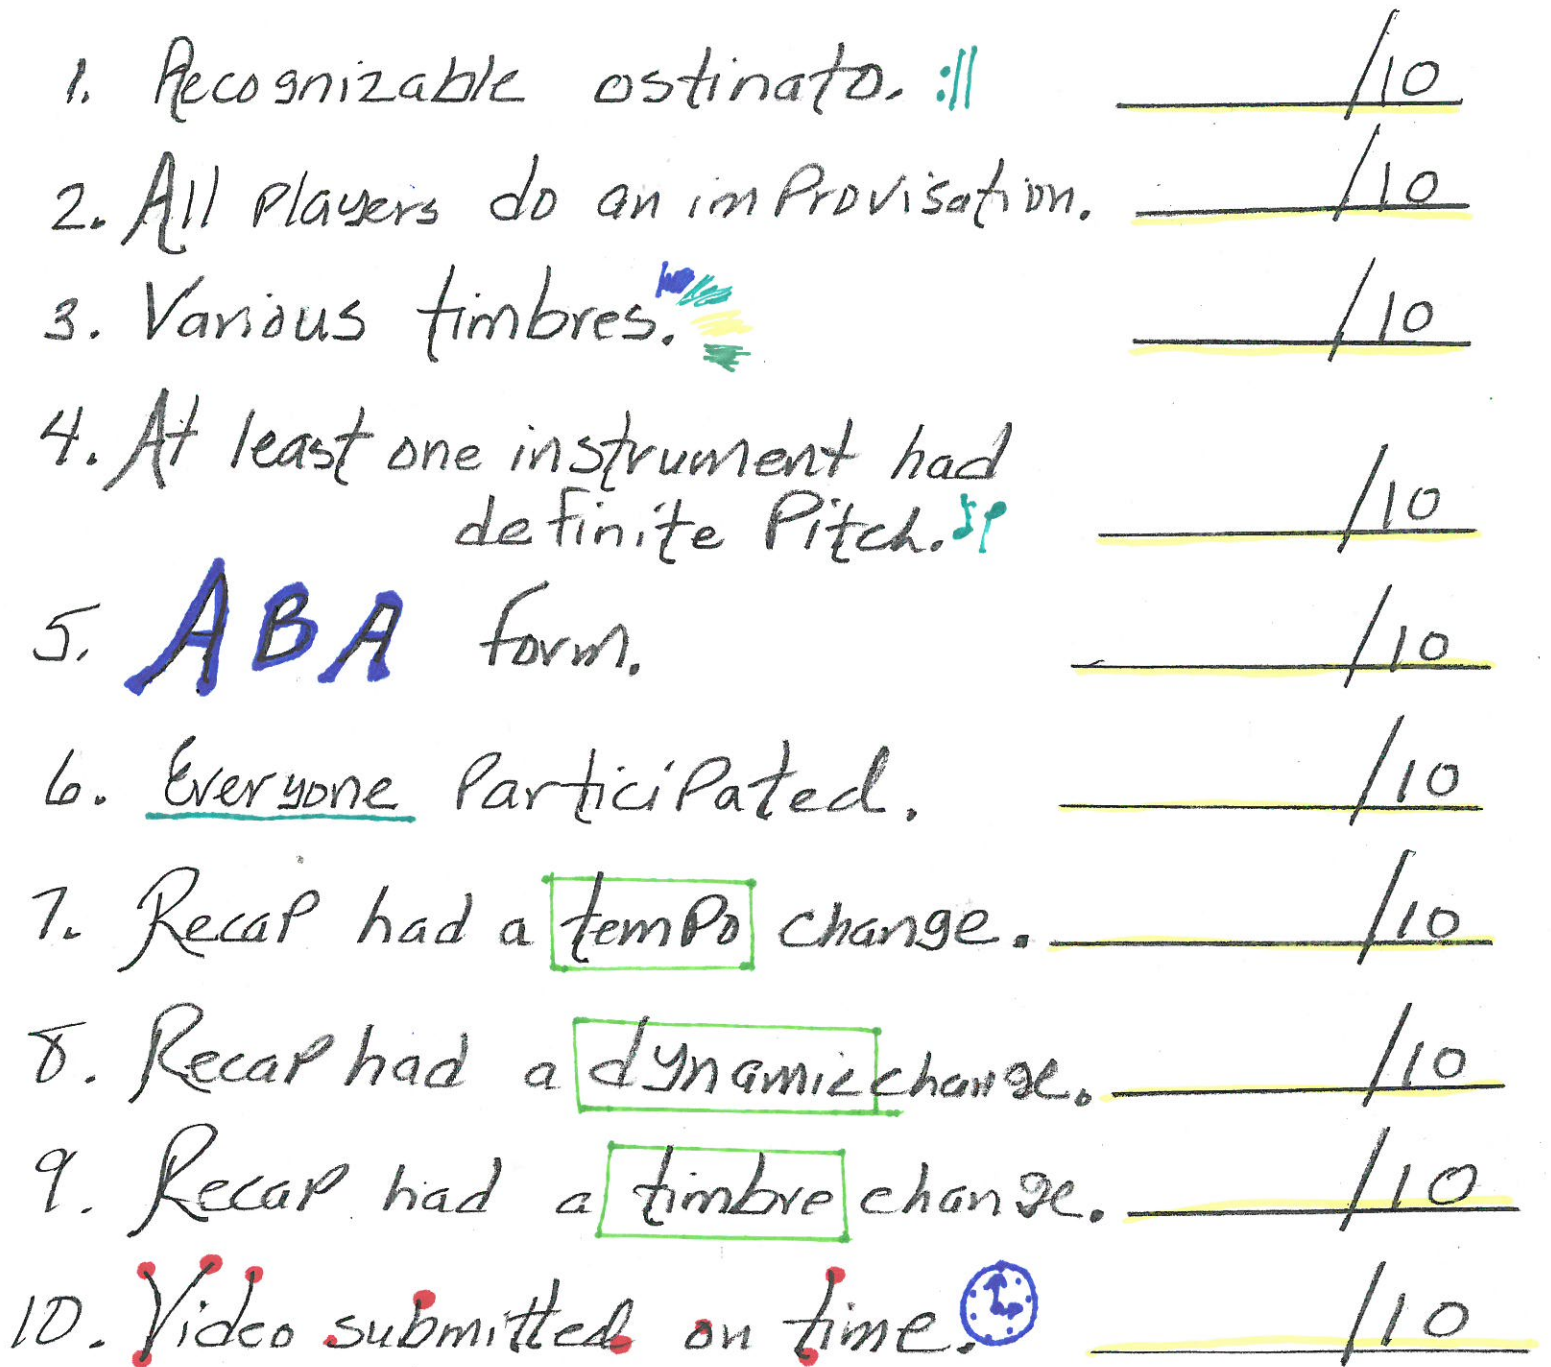 1. Recognizable ostinato. :|| /10
2. All players do an improvisation. /10
3. Various timbres. /10
4. At least one instrument had
definite Pitch. /10
5. ABA form. /10
6. Everyone Participated. /10
7. Recap had a tempo change. /10
8. Recap had a dynamic change. /10
9. Recap had a timbre change. /10
10. Video submitted on time. /10